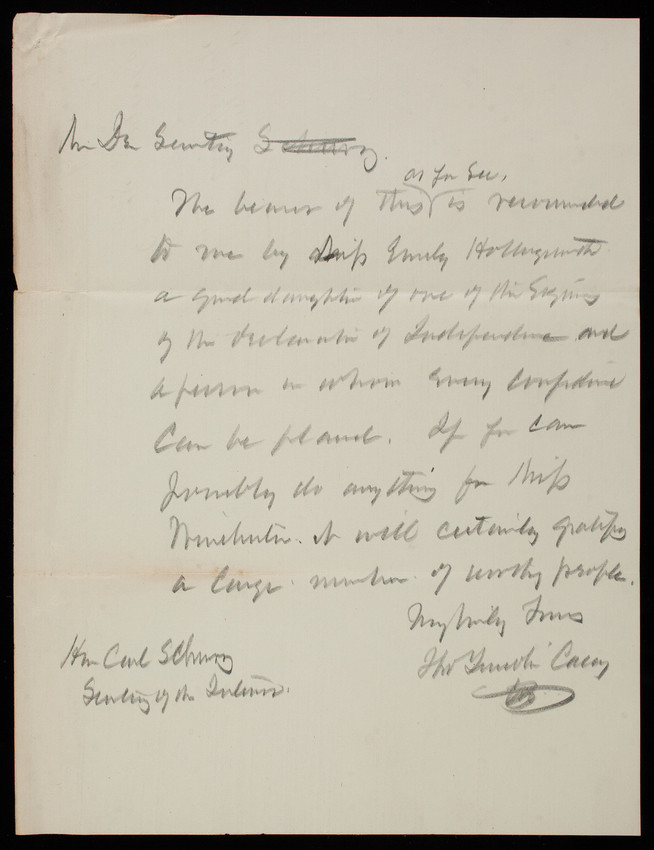 My Dear Secretary Schurz
as you see,
The bearer of this is recommended
to me by Miss Emily Hollingsworth
a grand daughter of one of the Signers
of the Declaration of Independence and
a person in whom every confidence
can be placed. If you can
possibly do anything for Miss
Winchester it will certainly gratify
a large number of worthy people.
Very truly Yours
Hon Carl Schurz
Thos Lincoln Casey
Secretary of the Interior.